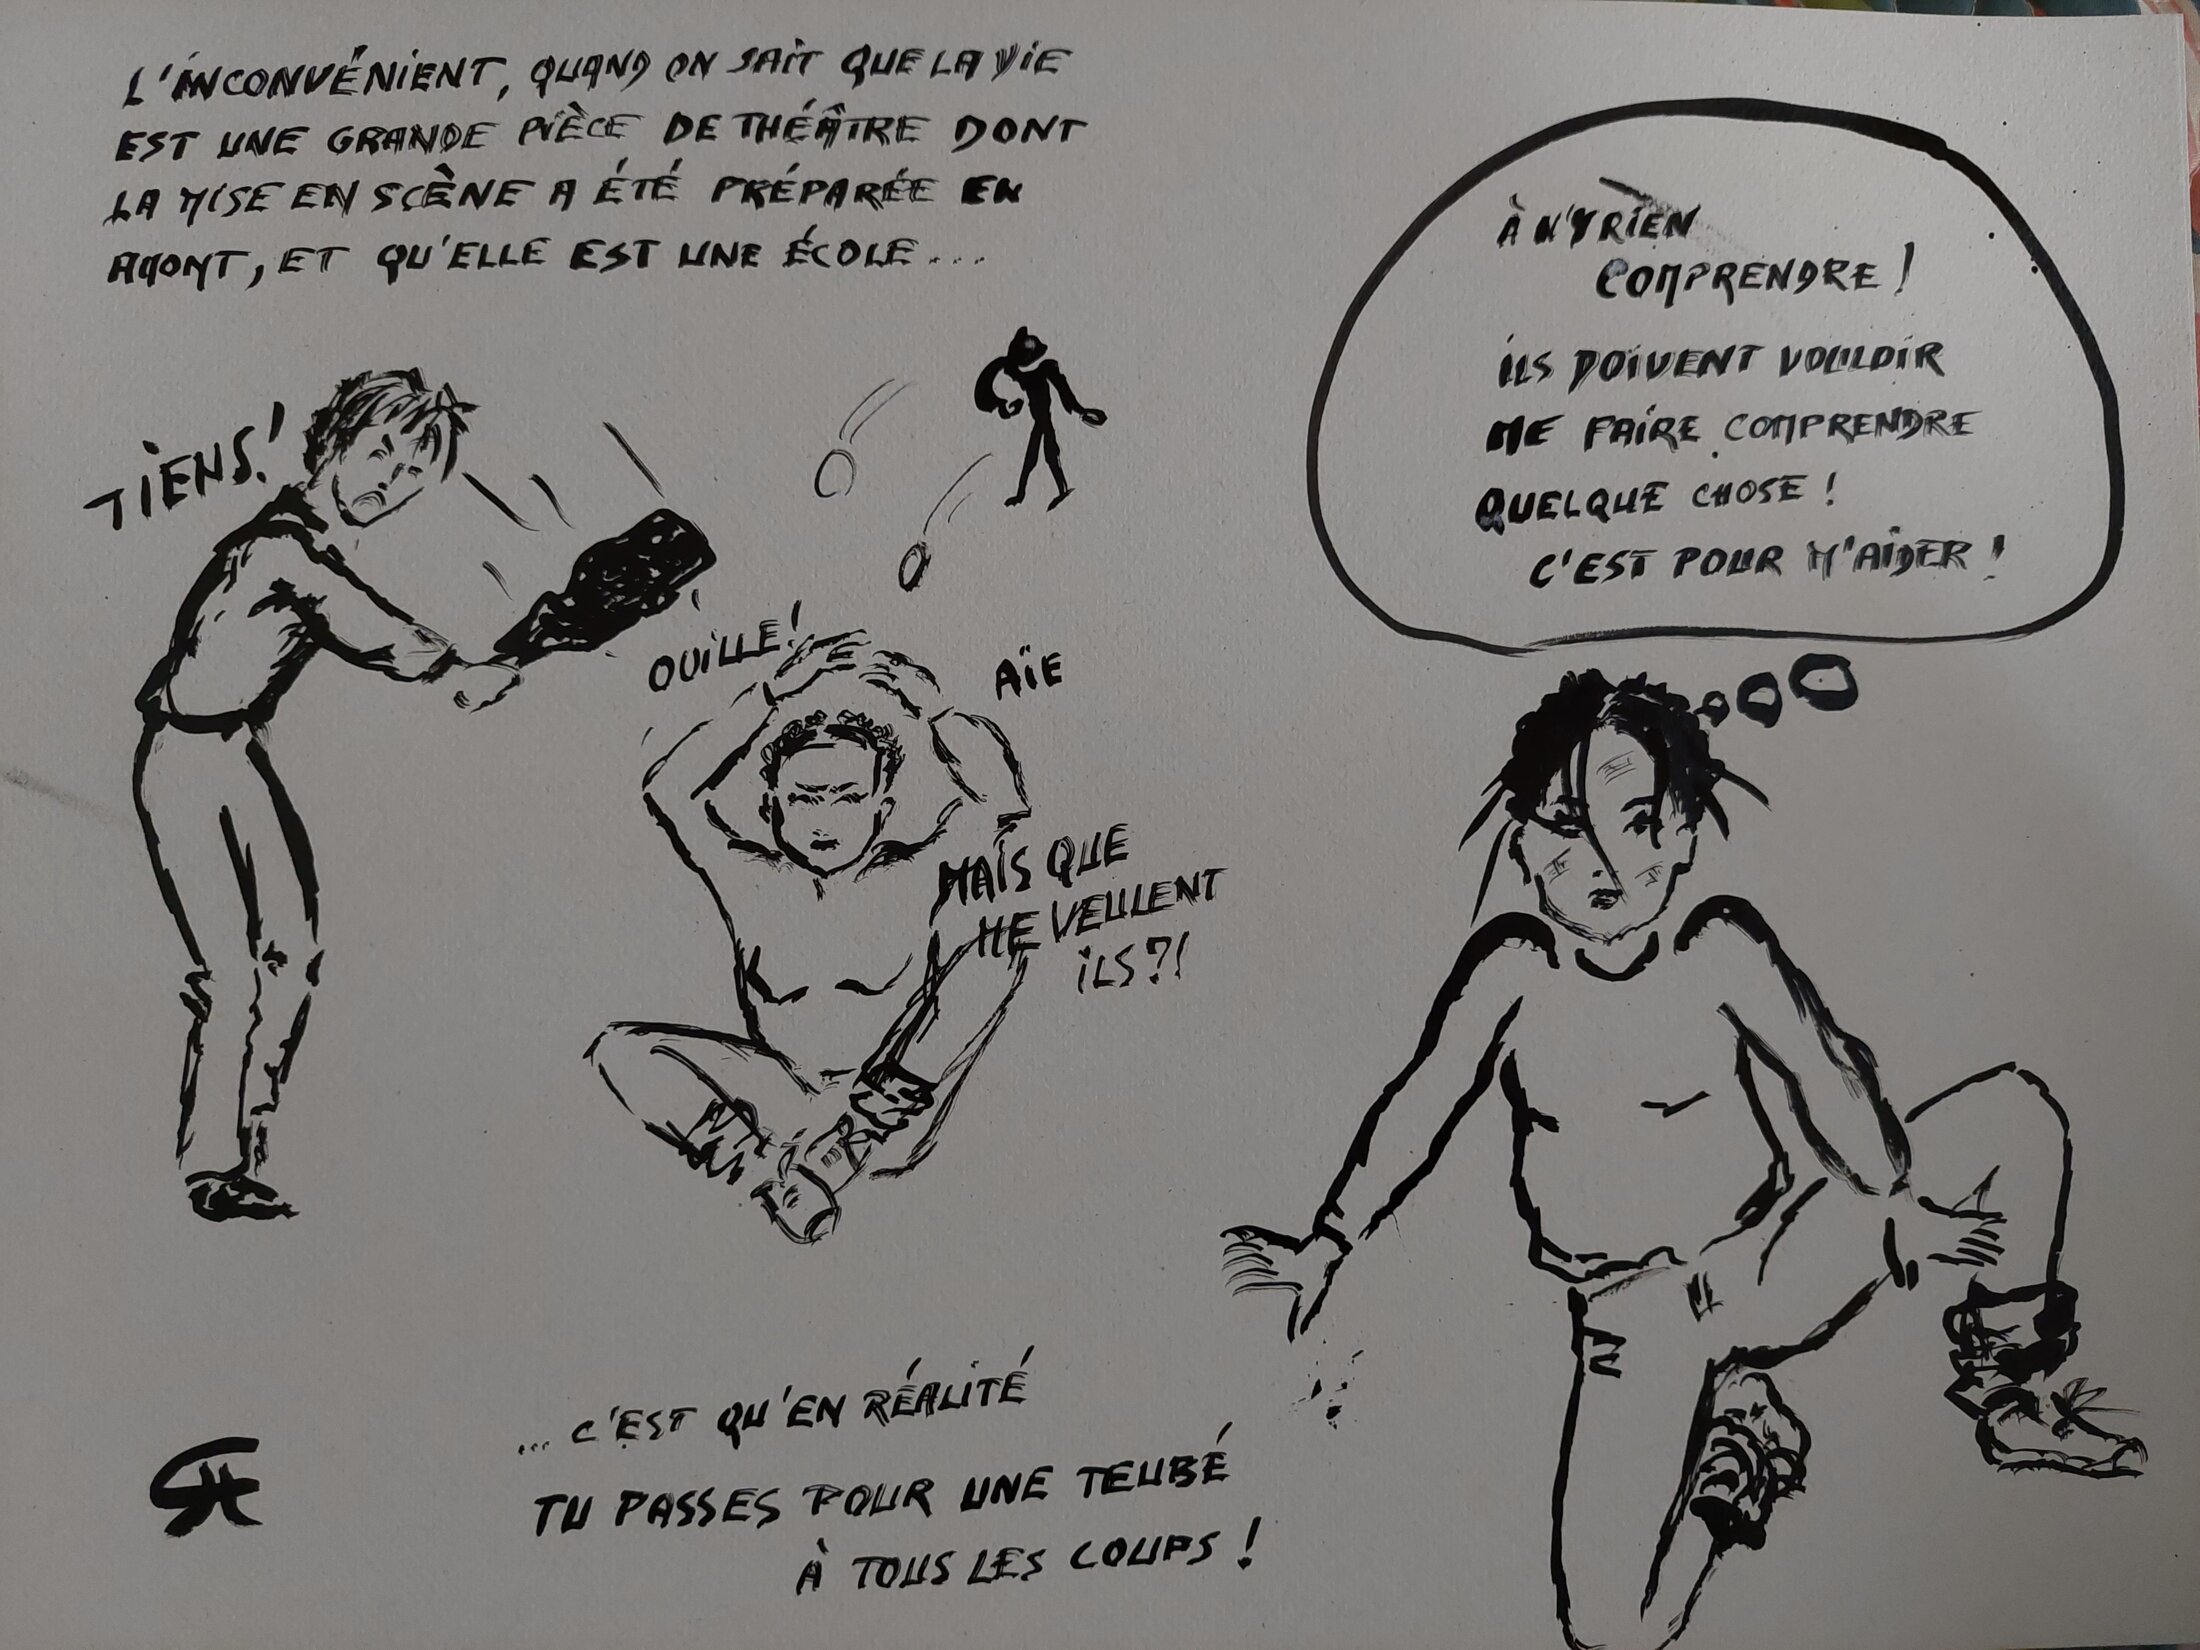 L'INCONVÉNIENT, QUAND ON SAIT QUE LA VIE
EST UNE GRANDE PIÈCE DE THÉÂTRE DONT
LA MISE EN SCÈNE A ÉTÉ PRÉPARÉE EN
AMONT, ET QU'ELLE EST UNE ÉCOLE...
TIENS!
OUILLE!
AÏE
MAIS QUE
ME VEULENT
ILS?!
À N'Y RIEN
COMPRENDRE!
ILS DOIVENT VOULOIR
ME FAIRE COMPRENDRE
QUELQUE CHOSE!
C'EST POUR M'AIDER!
... C'EST QU'EN RÉALITÉ
TU PASSES POUR UNE TEUBÉ
À TOUS LES COUPS!